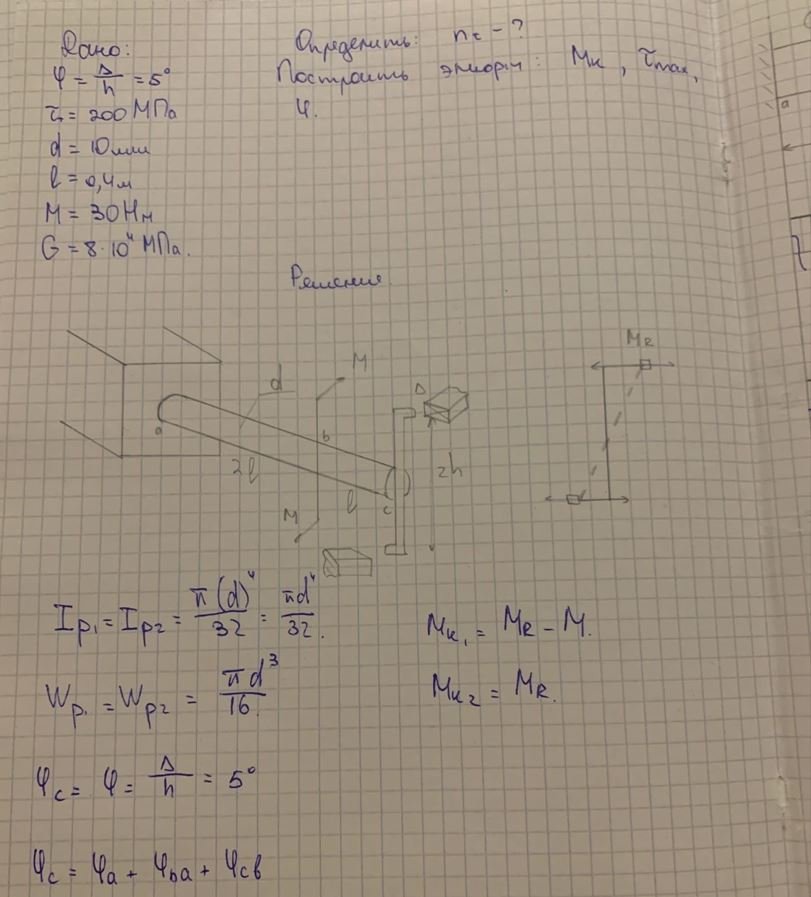 Дано:
φ = Δ/h = 5°
τт = 200 МПа
d = 10мм
l = 0,4м
M = 30Нм
G = 8·10⁴ МПа.
Определить: nт - ?
Построить эпюры: Mк, τmax,
φ.
Решение
M
d
Δ
b
a
2l
l
c
2h
M
MR
a
Ip₁ = Ip₂ = π(d)⁴/32 = πd⁴/32.
Mк₁ = MR - M.
Wp₁ = Wp₂ = πd³/16.
Mк₂ = MR.
φc = φ = Δ/h = 5°
φc = φa + φba + φcв